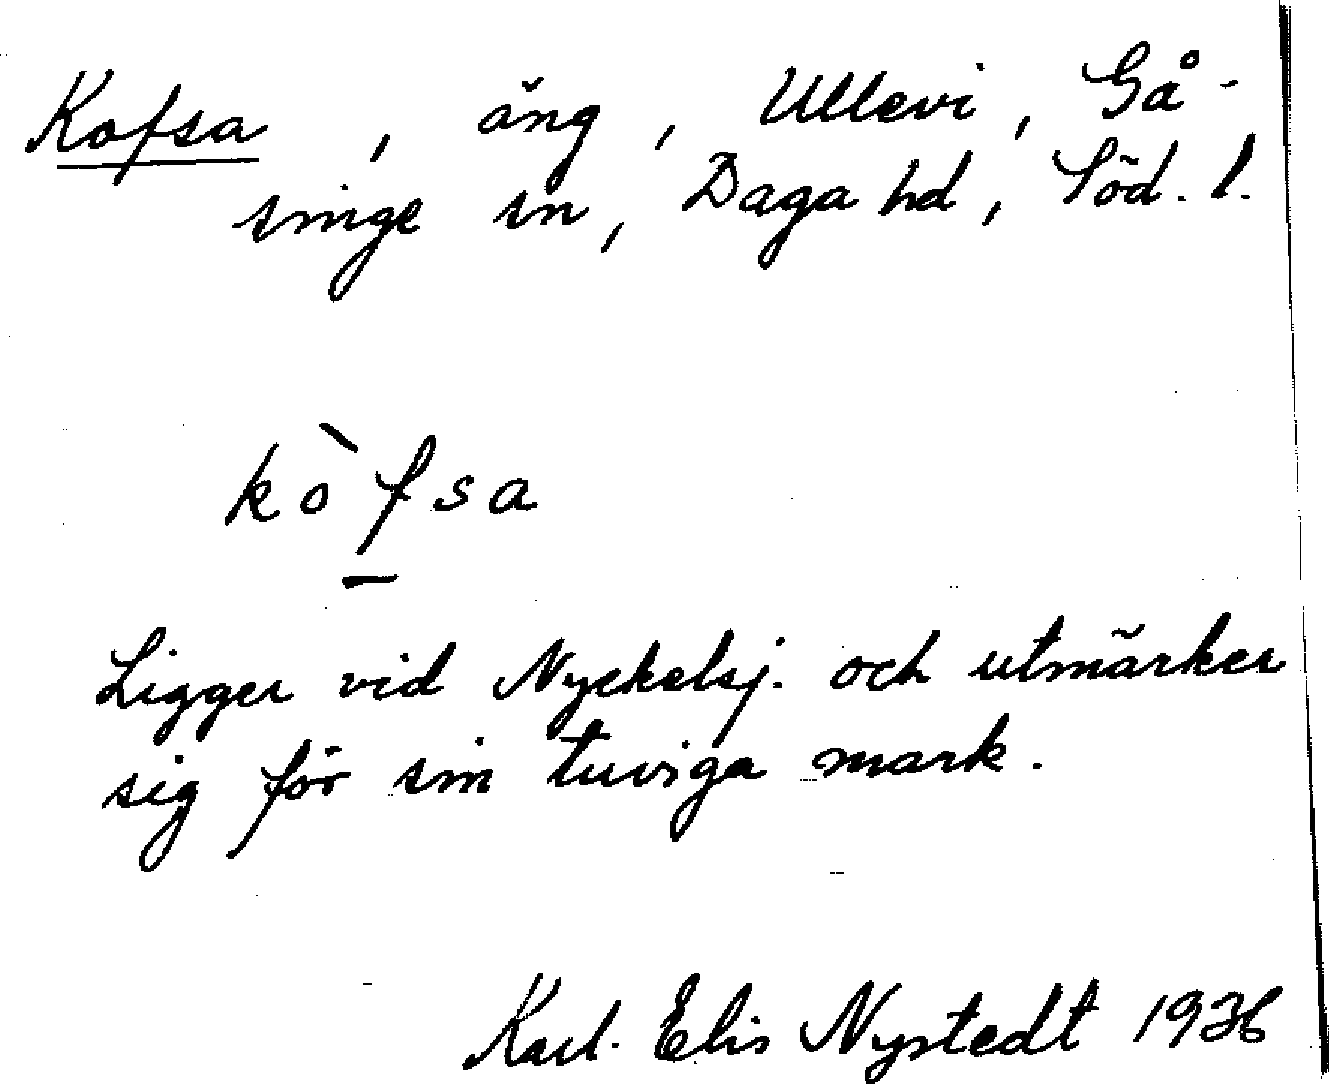 Kofsa, äng, Ullevi, Gå-
singe sn, Daga hd, Söd. l.
kòfsa
Ligger vid Nyckelsj. och utmärker
sig för sin tuviga mark.
Karl-Elis Nystedt 1936